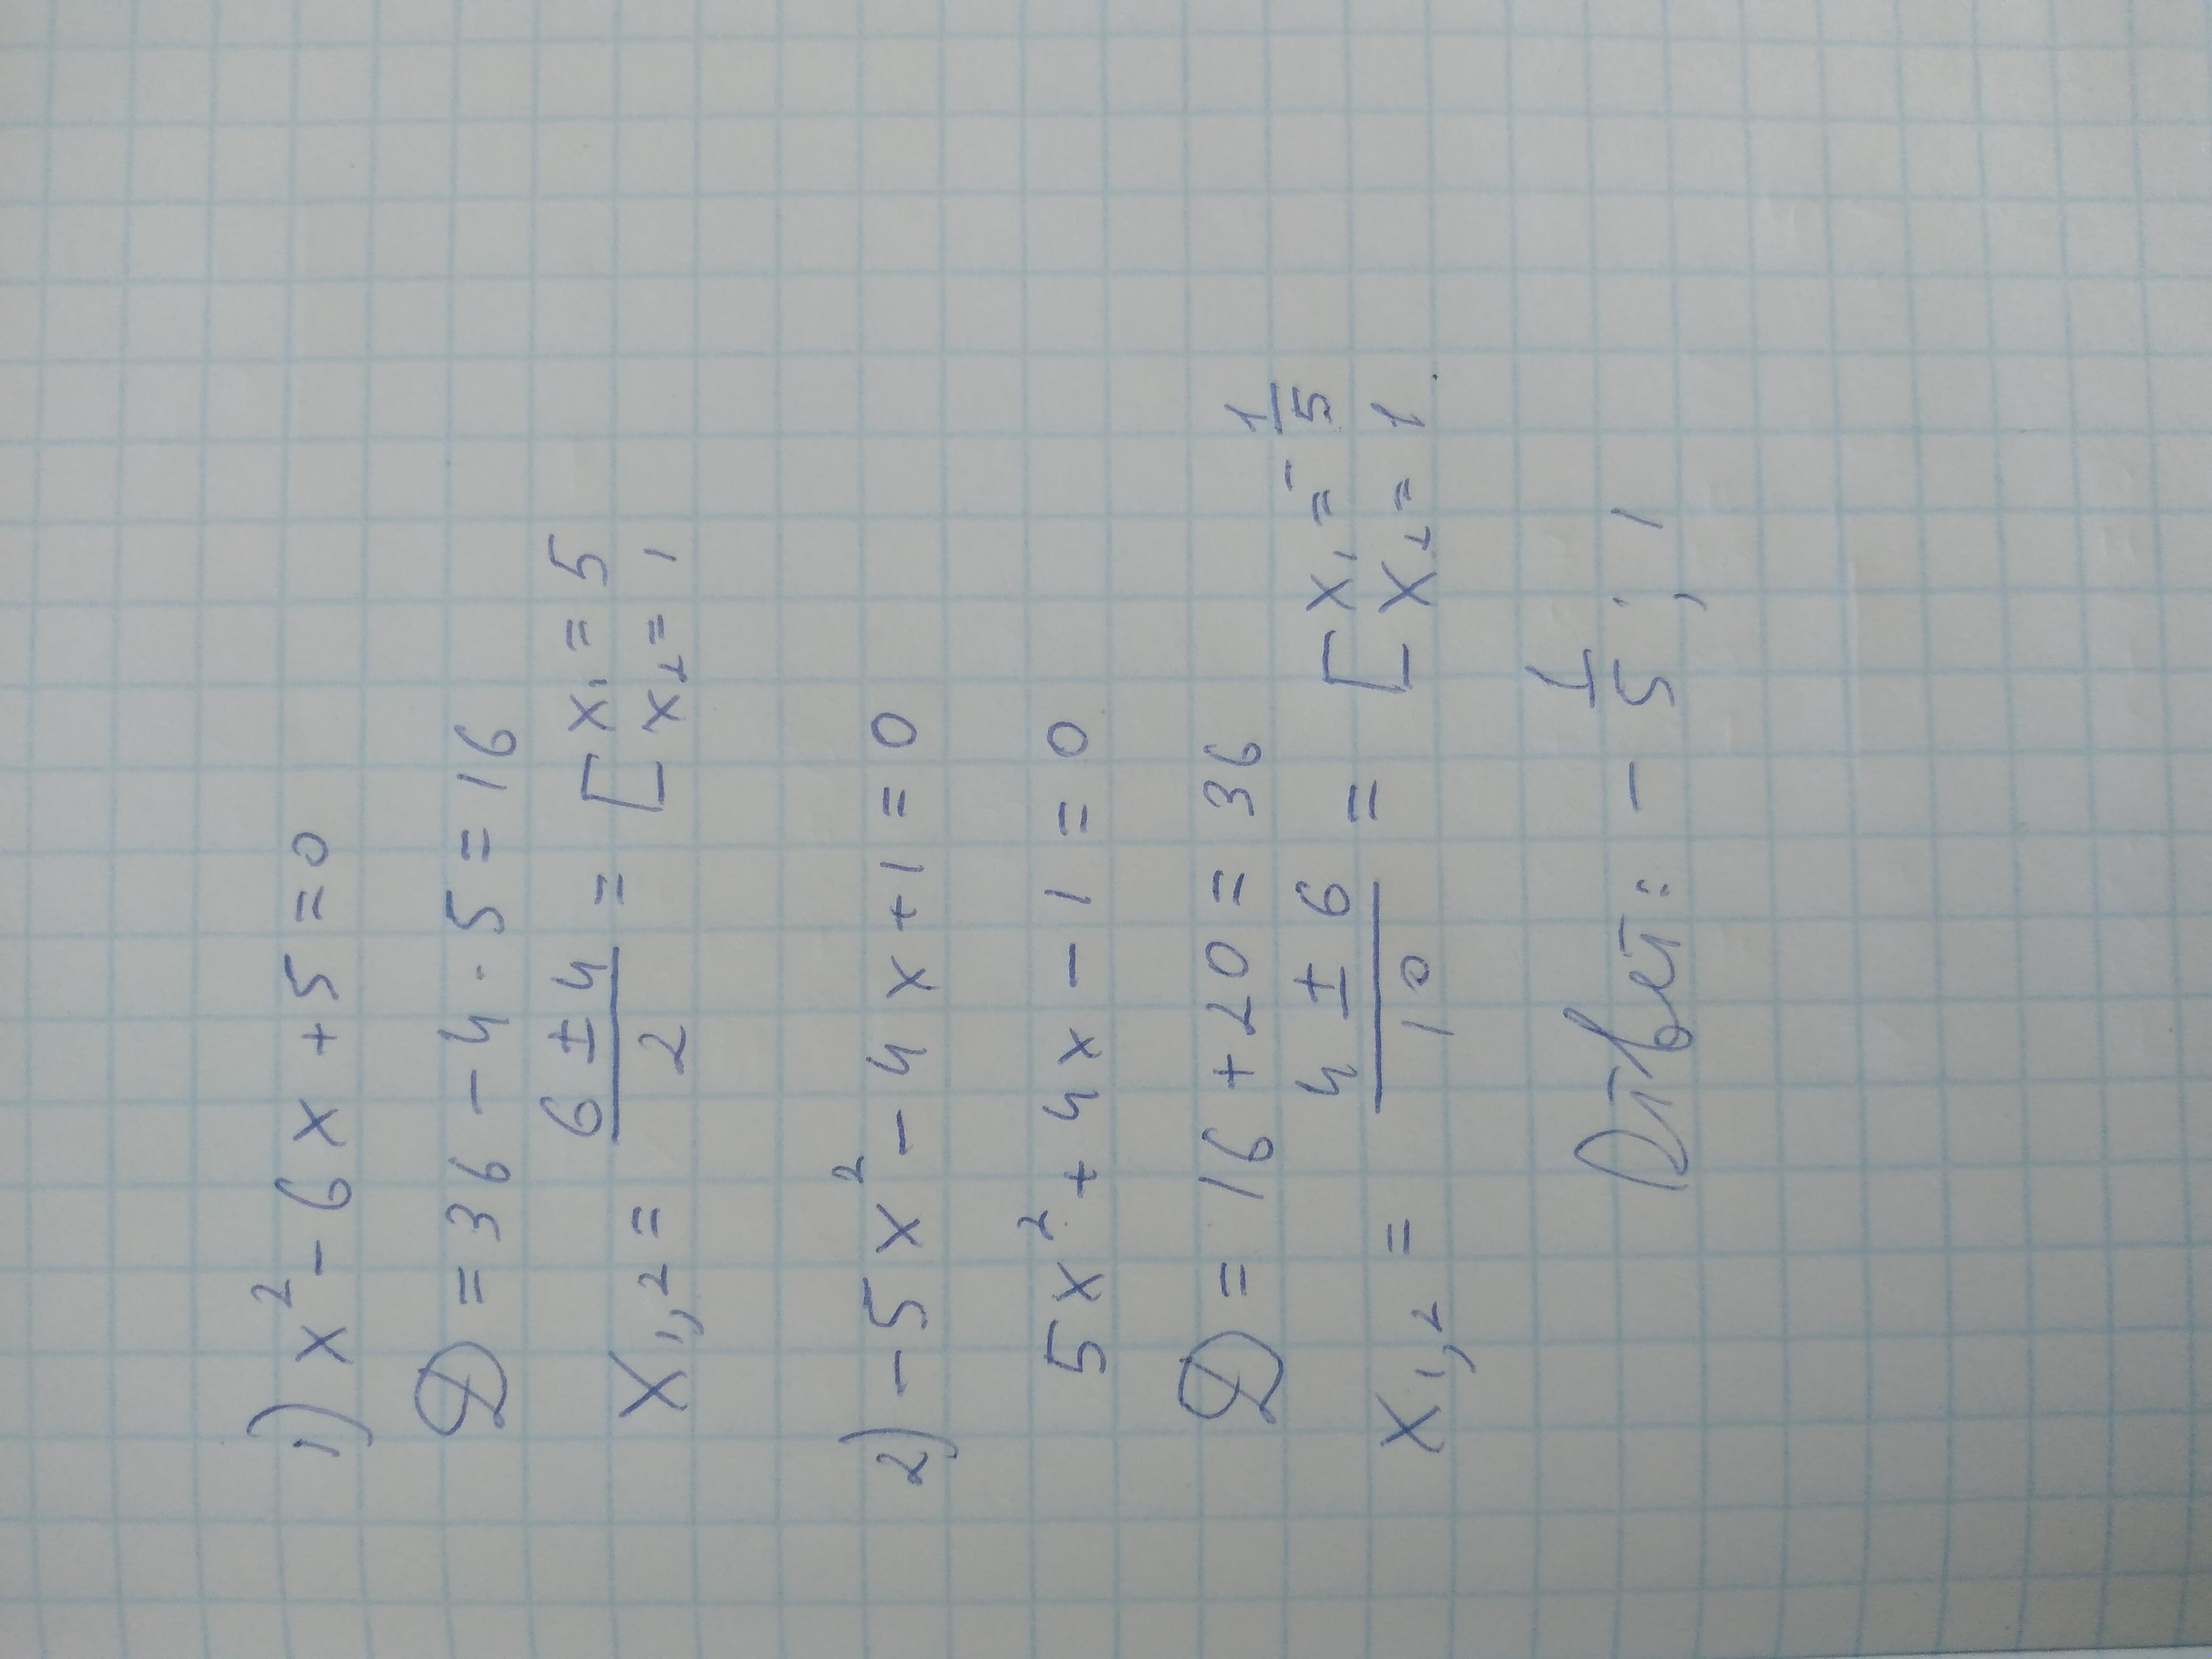 1) x² - 6x + 5 = 0
D = 36 - 4 · 5 = 16
x₁,₂ = (6 ± 4)/2 = [x₁ = 5
x₂ = 1
2) -5x² - 4x + 1 = 0
5x² + 4x - 1 = 0
D = 16 + 20 = 36
x₁,₂ = (4 ± 6)/10 = [x₁ = -1/5
x₂ = 1
Ответ: -1/5; 1